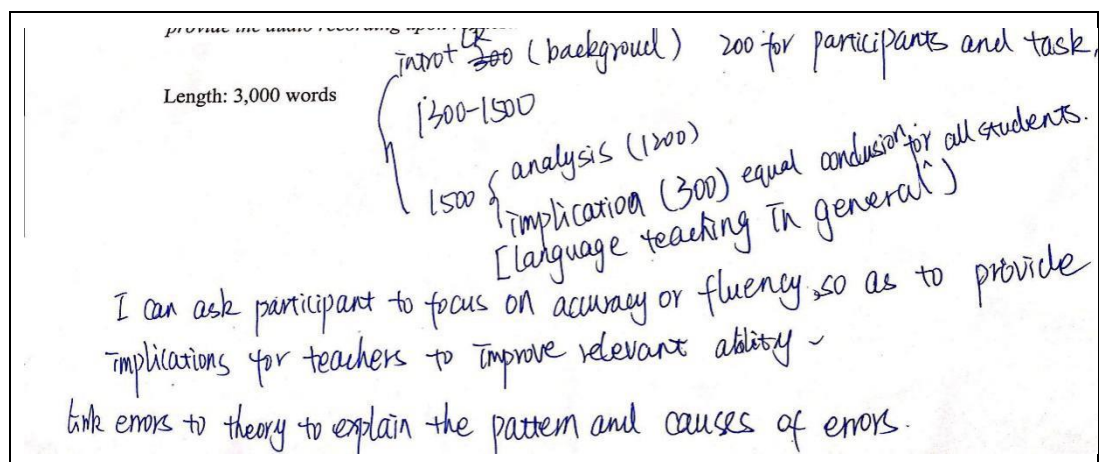 provide the audio recording upon
intro + LR 300 (backgroud) 200 for participants and task.
Length: 3,000 words
1300-1500
1500 { analysis (1200)
implication (300) equal conclusion
for all students.
[language teaching in general^)
I can ask participant to focus on accuracy or fluency, so as to provide
implications for teachers to improve relevant ability
link errors to theory to explain the pattern and causes of errors.